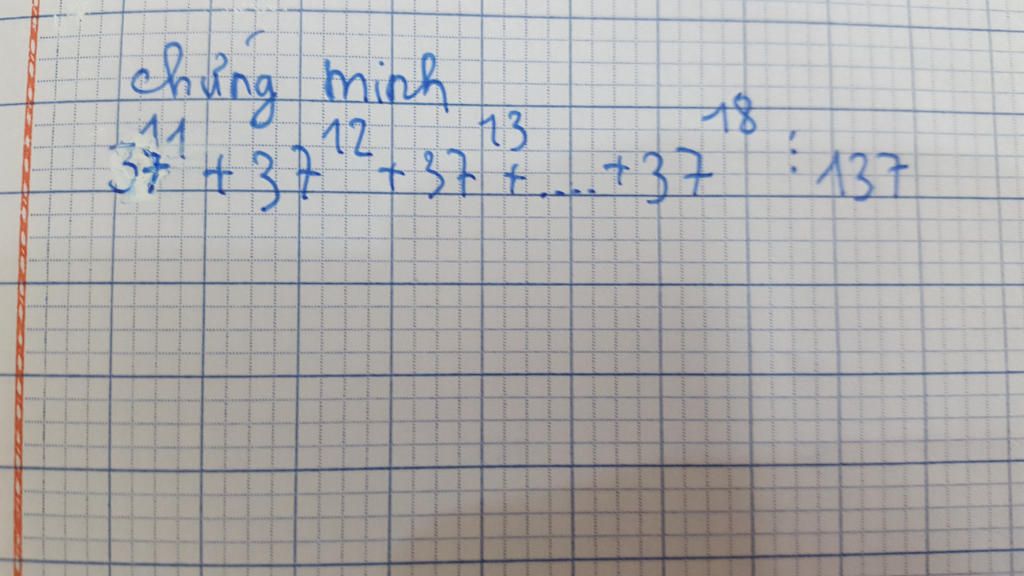 chứng minh
37¹¹ + 37¹² + 37¹³ + ..... + 37¹⁸ ⋮ 137